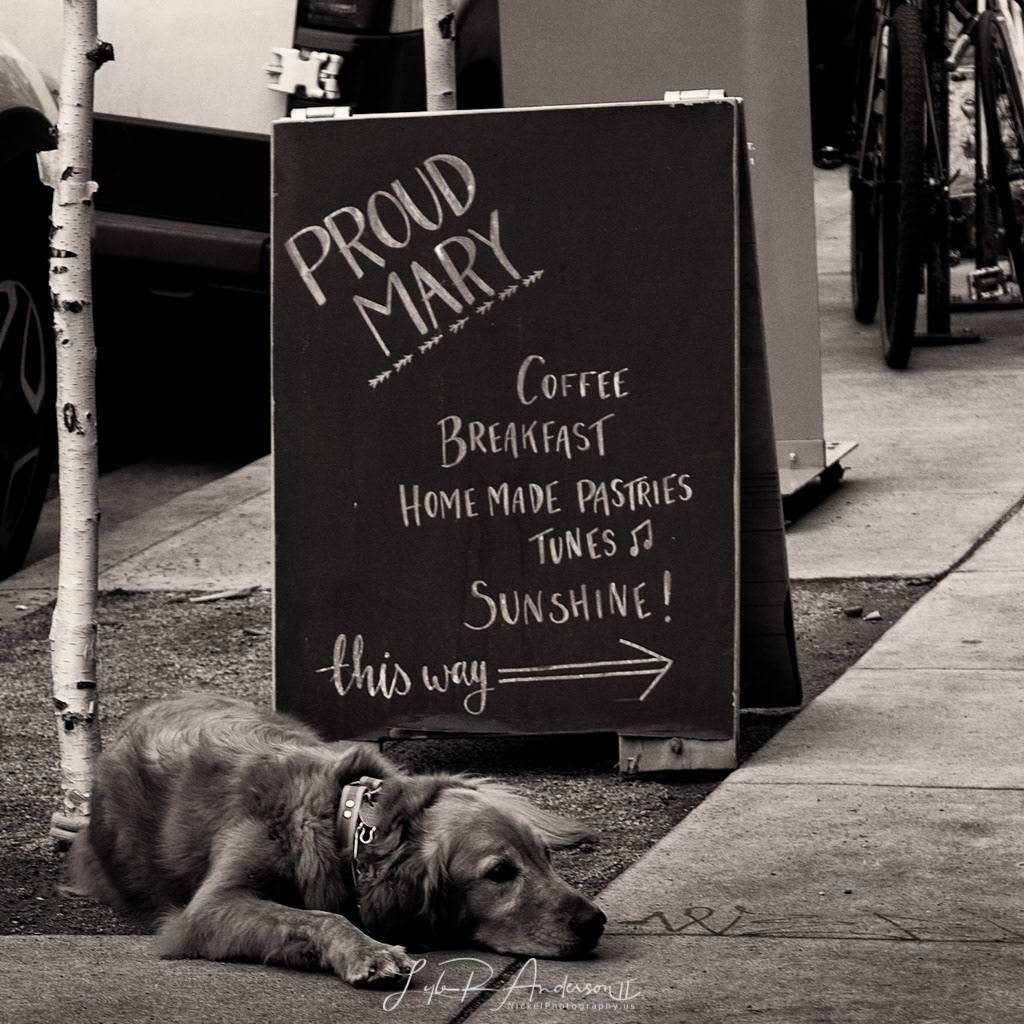 PROUD
MARY
COFFEE
BREAKFAST
HOME MADE PASTRIES
TUNES ♫
SUNSHINE!
this way →
Lyle R Anderson II
NickelPhotography.us